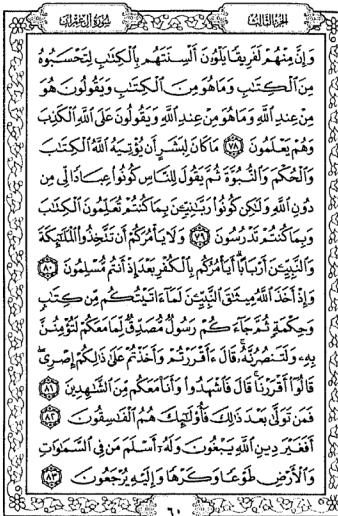 الجزء الثالث سورة آل عمران
وَإِنَّ مِنْهُمْ لَفَرِيقًا يَلْوُونَ أَلْسِنَتَهُم بِالْكِتَابِ لِتَحْسَبُوهُ
مِنَ الْكِتَابِ وَمَا هُوَ مِنَ الْكِتَابِ وَيَقُولُونَ هُوَ
مِنْ عِندِ اللَّهِ وَمَا هُوَ مِنْ عِندِ اللَّهِ وَيَقُولُونَ عَلَى اللَّهِ الْكَذِبَ
وَهُمْ يَعْلَمُونَ ٧٨ مَا كَانَ لِبَشَرٍ أَن يُؤْتِيَهُ اللَّهُ الْكِتَابَ
وَالْحُكْمَ وَالنُّبُوَّةَ ثُمَّ يَقُولَ لِلنَّاسِ كُونُوا عِبَادًا لِّي مِن
دُونِ اللَّهِ وَلَٰكِن كُونُوا رَبَّانِيِّينَ بِمَا كُنتُمْ تُعَلِّمُونَ الْكِتَابَ
وَبِمَا كُنتُمْ تَدْرُسُونَ ٧٩ وَلَا يَأْمُرَكُمْ أَن تَتَّخِذُوا الْمَلَائِكَةَ
وَالنَّبِيِّينَ أَرْبَابًا أَيَأْمُرُكُم بِالْكُفْرِ بَعْدَ إِذْ أَنتُم مُّسْلِمُونَ ٨٠
وَإِذْ أَخَذَ اللَّهُ مِيثَاقَ النَّبِيِّينَ لَمَا آتَيْتُكُم مِّن كِتَابٍ
وَحِكْمَةٍ ثُمَّ جَاءَكُمْ رَسُولٌ مُّصَدِّقٌ لِّمَا مَعَكُمْ لَتُؤْمِنُنَّ
بِهِ وَلَتَنصُرُنَّهُ قَالَ أَأَقْرَرْتُمْ وَأَخَذْتُمْ عَلَىٰ ذَٰلِكُمْ إِصْرِي
قَالُوا أَقْرَرْنَا قَالَ فَاشْهَدُوا وَأَنَا مَعَكُم مِّنَ الشَّاهِدِينَ ٨١
فَمَن تَوَلَّىٰ بَعْدَ ذَٰلِكَ فَأُولَٰئِكَ هُمُ الْفَاسِقُونَ ٨٢
أَفَغَيْرَ دِينِ اللَّهِ يَبْغُونَ وَلَهُ أَسْلَمَ مَن فِي السَّمَاوَاتِ
وَالْأَرْضِ طَوْعًا وَكَرْهًا وَإِلَيْهِ يُرْجَعُونَ ٨٣
٦٠